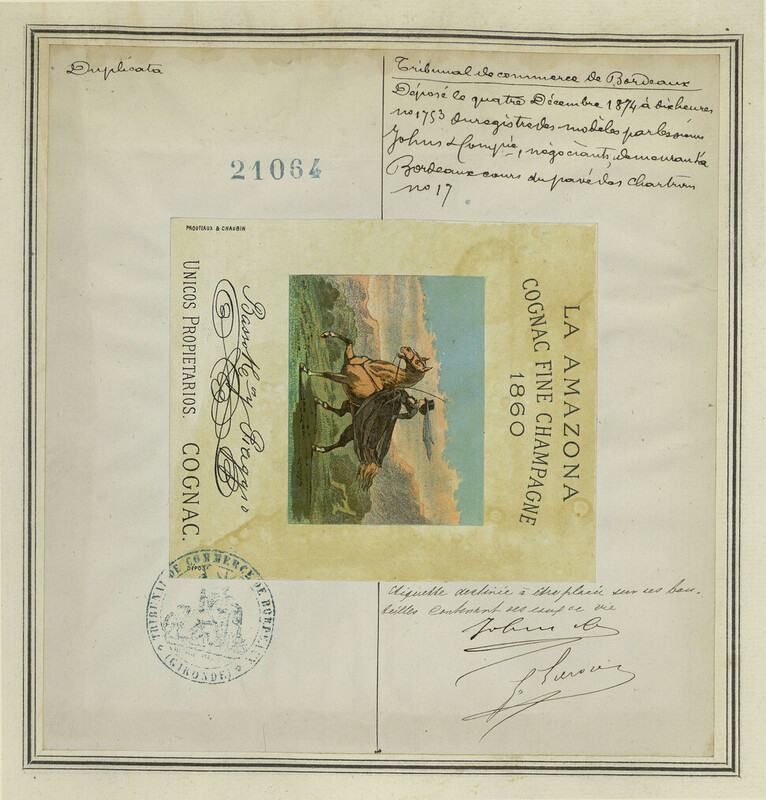 Duplicata
21064
Tribunal de commerce de Bordeaux
Déposé le quatre Décembre 1874 à dix heures
no 1753 du registre des modèles par les sieurs
Johns & Compie, négociants, demeurant à
Bordeaux cours du pavé des Chartrons
no 17
PROUTIAUX & CHAUBIN
LA AMAZONA
COGNAC FINE CHAMPAGNE
1860
y Baggio
UNICOS PROPIETARIOS. COGNAC.
TRIBUNAL DE COMMERCE DE BORDEAUX
(GIRONDE)
Etiquette destinée à être placée sur ses bou-
teilles contenant ses eaux de vie
Johns & Co